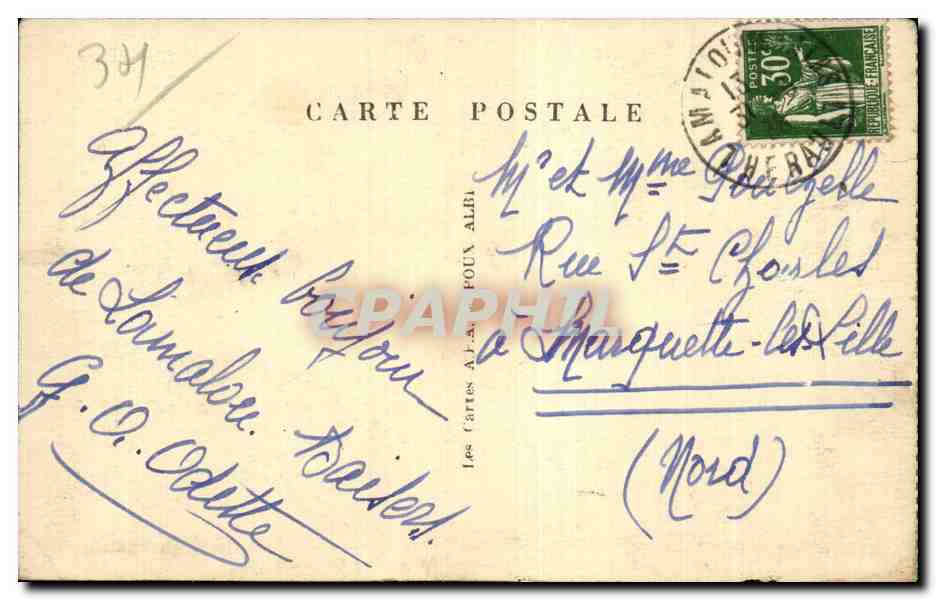 34
CARTE POSTALE
LAMALOU
HERAULT
POSTES
30c
REPUBLIQUE-FRANÇAISE
Affectueux bonjour
de Lamalou. Baisers.
G. O. Odette
Les Cartes A.P.A. POUX ALBI
CPAPHIL
Mr et Mme
Rue St Charles
à Marquette-lez-Lille
(Nord)